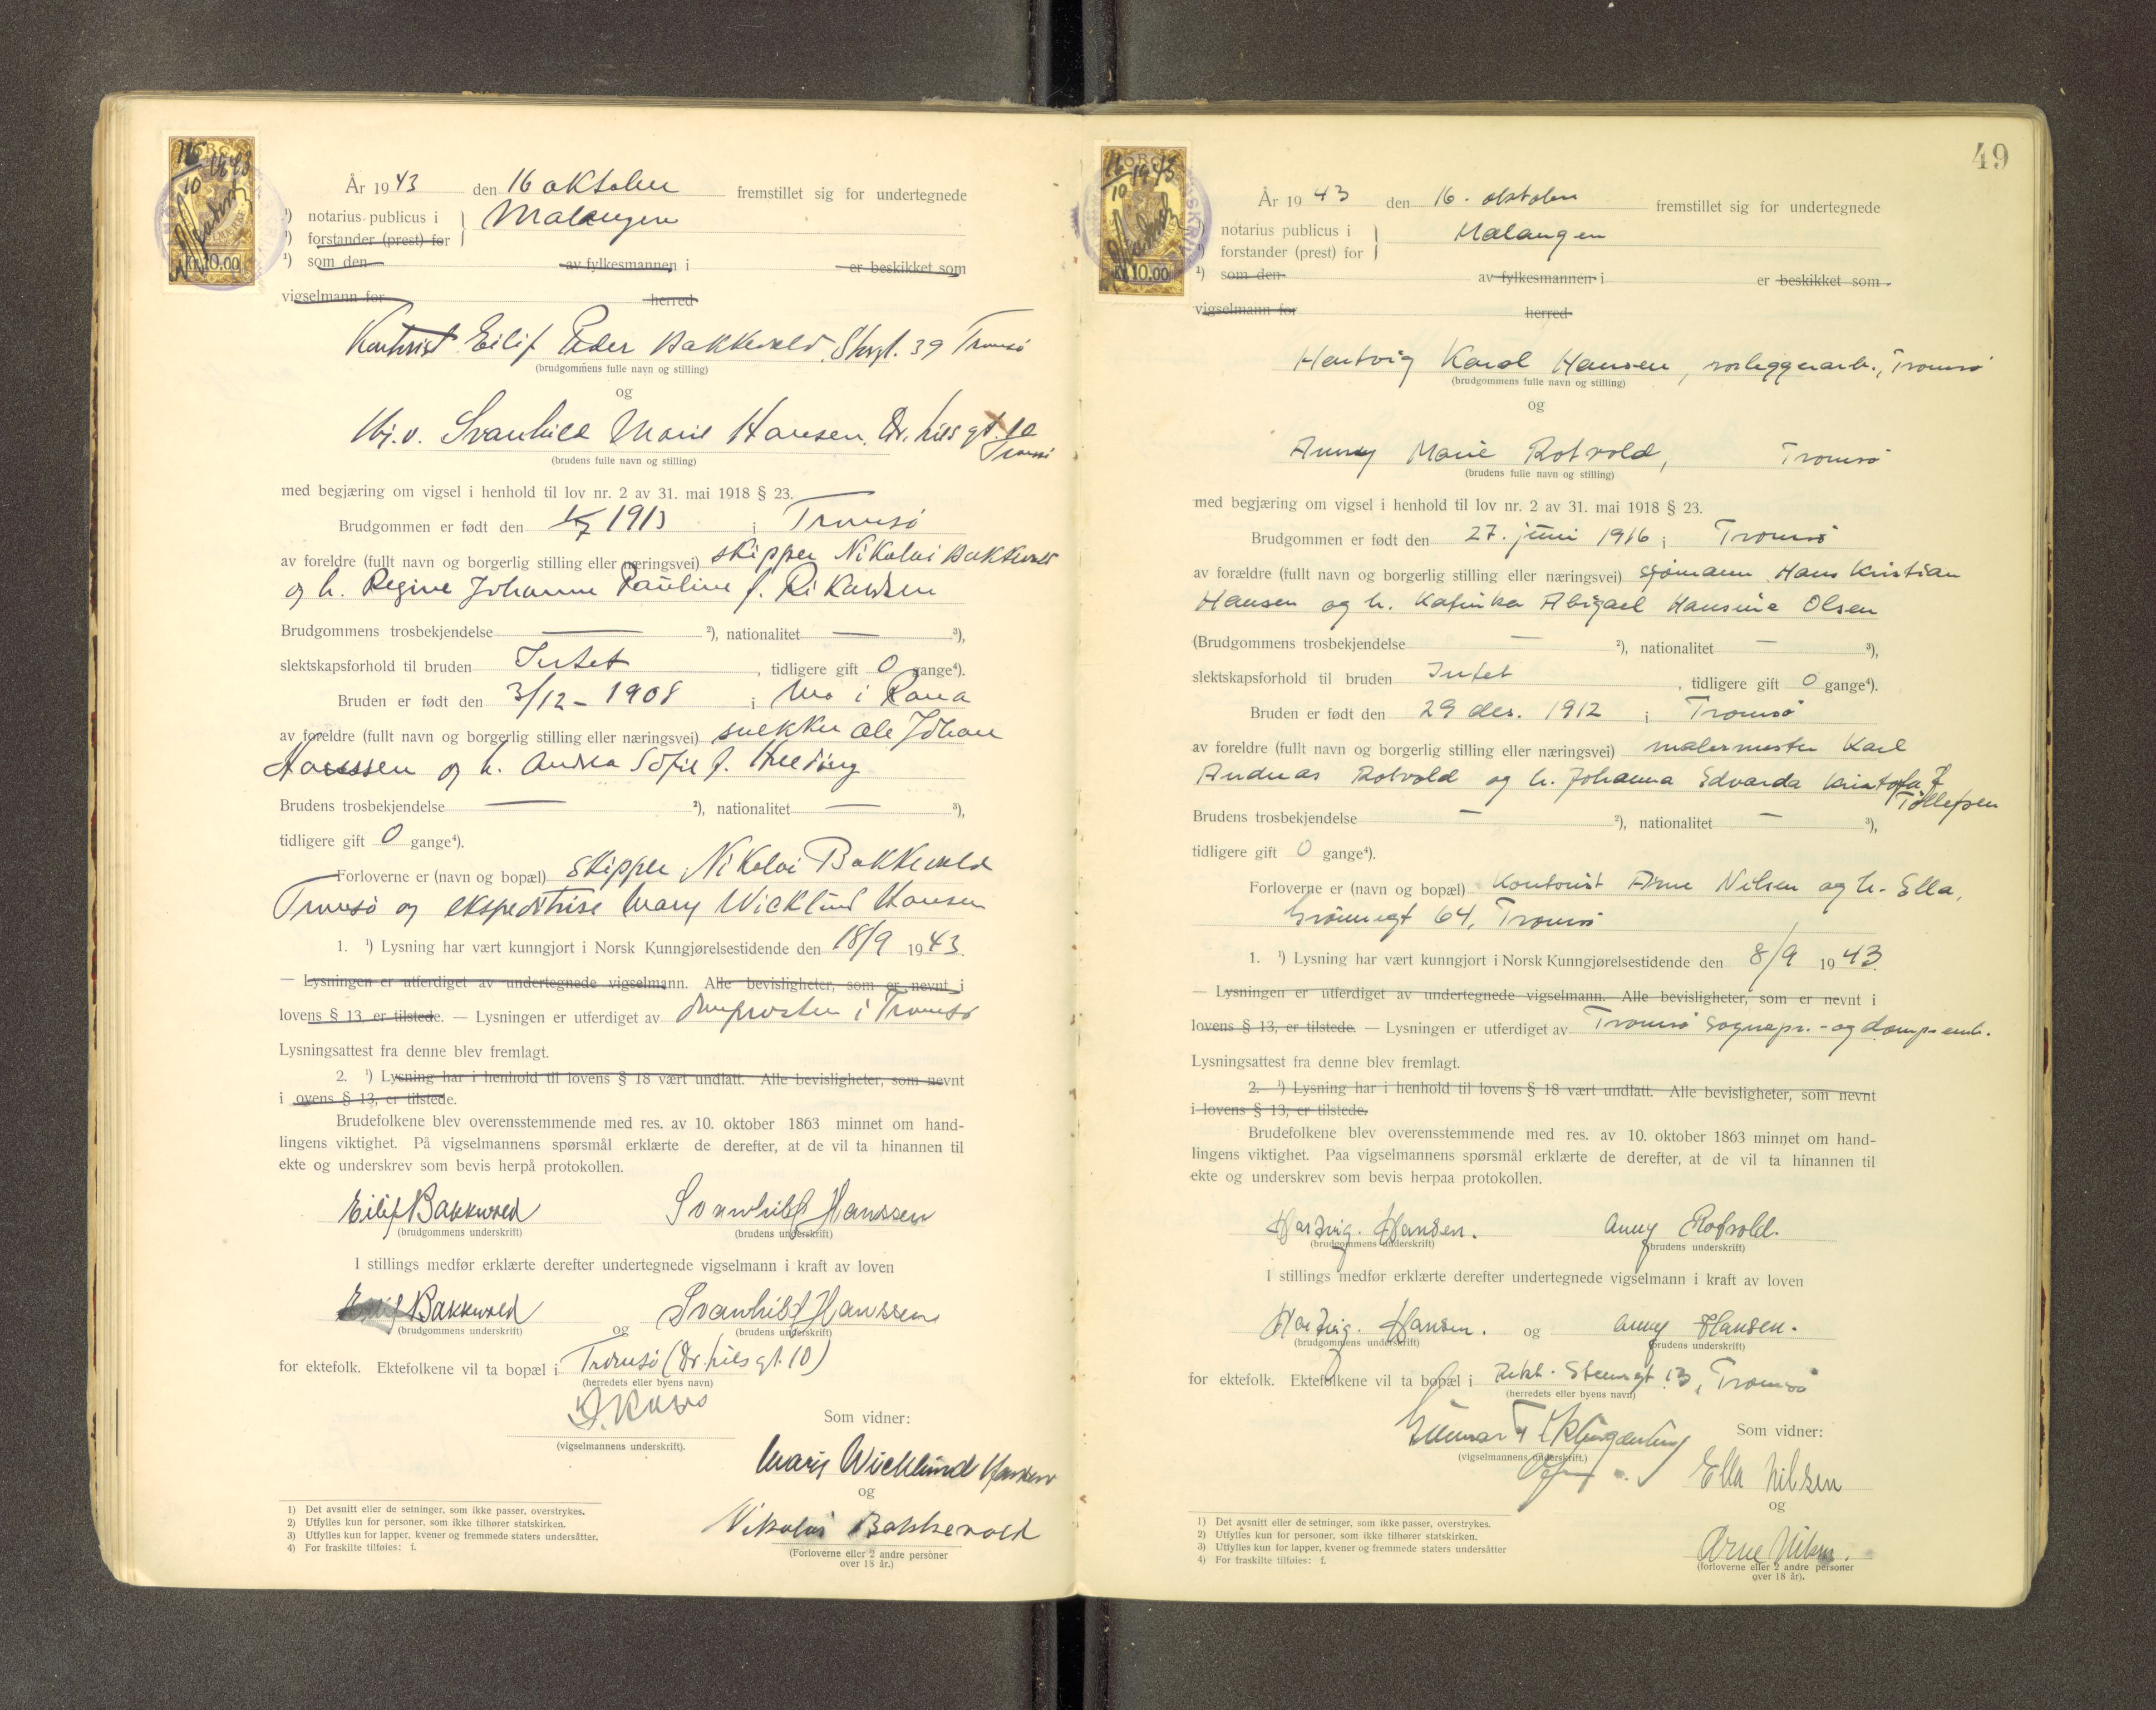 År 1943 den 16 oktober fremstillet sig for undertegnede
¹) notarius publicus i Malangen
¹) forstander (prest) for
¹) som den av fylkesmannen i er beskikket som
vigselmann for herred
Kontorist Eilif Peder Bakkevold, Storgt. 39 Tromsø
(brudgommens fulle navn og stilling)
og
Hj.v. Svanhild Marie Hansen, Dr. gt. 10
Tromsø
(brudens fulle navn og stilling)
med begjæring om vigsel i henhold til lov nr. 2 av 31. mai 1918 § 23.
Brudgommen er født den 1913 i Tromsø
av foreldre (fullt navn og borgerlig stilling eller næringsvei) skipper Nikolai Bakkevold
og h. Regine Johanne Pauline f. Rikardsen
Brudgommens trosbekjendelse — ²), nationalitet — ³),
slektskapsforhold til bruden Intet, tidligere gift 0 gange⁴).
Bruden er født den 3/12 - 1908 i Mo i Rana
av foreldre (fullt navn og borgerlig stilling eller næringsvei) snekker Ole Johan
Hanssen og h. Andrea Sofie f.
Brudens trosbekjendelse — ²), nationalitet — ³),
tidligere gift 0 gange⁴).
Forloverne er (navn og bopæl) skipper Nikolai Bakkevold
Tromsø og ekspeditrise Mary Wicklund Hansen
1. ¹) Lysning har vært kunngjort i Norsk Kunngjørelsestidende den 18/9 1943.
— Lysningen er utferdiget av undertegnede vigselmann. Alle bevisligheter, som er nevnt i
lovens § 13, er tilstede. — Lysningen er utferdiget av domprosten i Tromsø
Lysningsattest fra denne blev fremlagt.
2. ¹) Lysning har i henhold til lovens § 18 vært undlatt. Alle bevisligheter, som nevnt
i ovens § 13, er tilstede.
Brudefolkene blev overensstemmende med res. av 10. oktober 1863 minnet om hand-
lingens viktighet. På vigselmannens spørsmål erklærte de derefter, at de vil ta hinannen til
ekte og underskrev som bevis herpå protokollen.
Eilif Bakkevold Svanhild Hanssen
(brudgommens underskrift) (brudens underskrift)
I stillings medfør erklærte derefter undertegnede vigselmann i kraft av loven
Eilif Bakkevold og Svanhild Hanssen
(brudgommens underskrift) (brudens underskrift)
for ektefolk. Ektefolkene vil ta bopæl i Tromsø (Dr. gt. 10)
(herredets eller byens navn)
(vigselmannens underskrift).
Som vidner:
Mary Wicklund Hansen
og
Nikolai Bakkevold
(Forloverne eller 2 andre personer
over 18 år.)
1) Det avsnitt eller de setninger, som ikke passer, overstrykes.
2) Utfylles kun for personer, som ikke tilhører statskirken.
3) Utfylles kun for lapper, kvener og fremmede staters undersåtter.
4) For fraskilte tilføies: f.
NORGE
16/10 1943
Kr. 10.00
49
År 1943 den 16. oktober fremstillet sig for undertegnede
notarius publicus i Malangen
forstander (prest) for
¹) som den av fylkesmannen i er beskikket som
vigselmann for herred
Hartvig Karol Hansen, rørleggerarb., Tromsø
(brudgommens fulle navn og stilling)
og
Anny Marie Rotvold, Tromsø
(brudens fulle navn og stilling)
med begjæring om vigsel i henhold til lov nr. 2 av 31. mai 1918 § 23.
Brudgommen er født den 27. juni 1916 i Tromsø
av forældre (fullt navn og borgerlig stilling eller næringsvei) sjømann Hans Kristian
Hansen og h. Katinka Abigael Hansine Olsen
(Brudgommens trosbekjendelse — ²), nationalitet — ³),
slektskapsforhold til bruden Intet, tidligere gift 0 gange⁴).
Bruden er født den 29 des. 1912 i Tromsø
av foreldre (fullt navn og borgerlig stilling eller næringsvei) malermester Karl
Andreas Rotvold og h. Johanna Edvarda Kristofa f.
Tollefsen
Brudens trosbekjendelse — ²), nationalitet — ³),
tidligere gift 0 gange⁴).
Forloverne er (navn og bopæl) Kontorist Arne Nilsen og h. Ella,
Grønnegt 64, Tromsø
1. ¹) Lysning har vært kunngjort i Norsk Kunngjørelsestidende den 8/9 1943.
— Lysningen er utferdiget av undertegnede vigselmann. Alle bevisligheter, som er nevnt i
lovens § 13, er tilstede. — Lysningen er utferdiget av Tromsø Sognepr.- og dompr. emb.
Lysningsattest fra denne blev fremlagt.
2. ¹) Lysning har i henhold til lovens § 18 vært undlatt. Alle bevisligheter, som nevnt
i lovens § 13, er tilstede.
Brudefolkene blev overensstemmende med res. av 10. oktober 1863 minnet om hand-
lingens viktighet. Paa vigselmannens spørsmål erklærte de derefter, at de vil ta hinannen til
ekte og underskrev som bevis herpaa protokollen.
Hartvig. Hansen. Anny Rotvold.
(brudgommens underskrift) (brudens underskrift)
I stillings medfør erklærte derefter undertegnede vigselmann i kraft av loven
Hartvig. Hansen. og Anny Hansen.
(brudgommens underskrift) (brudens underskrift)
for ektefolk. Ektefolkene vil ta bopæl i Rekt. Steengt 13, Tromsø
(herredets eller byens navn)
Gunnar
(vigselmannens underskrift.)
Som vidner:
Ella Nilsen
og
Arne Nilsen.
(forloverne eller 2 andre personer
over 18 år).
1) Det avsnitt eller de setninger, som ikke passer, overstrykes.
2) Utfylles kun for personer, som ikke tilhører statskirken.
3) Utfylles kun for lapper, kvener og fremmede staters undersåtter
4) For fraskilte tilføies: f.
NORGE
16/10 1943
Kr. 10.00